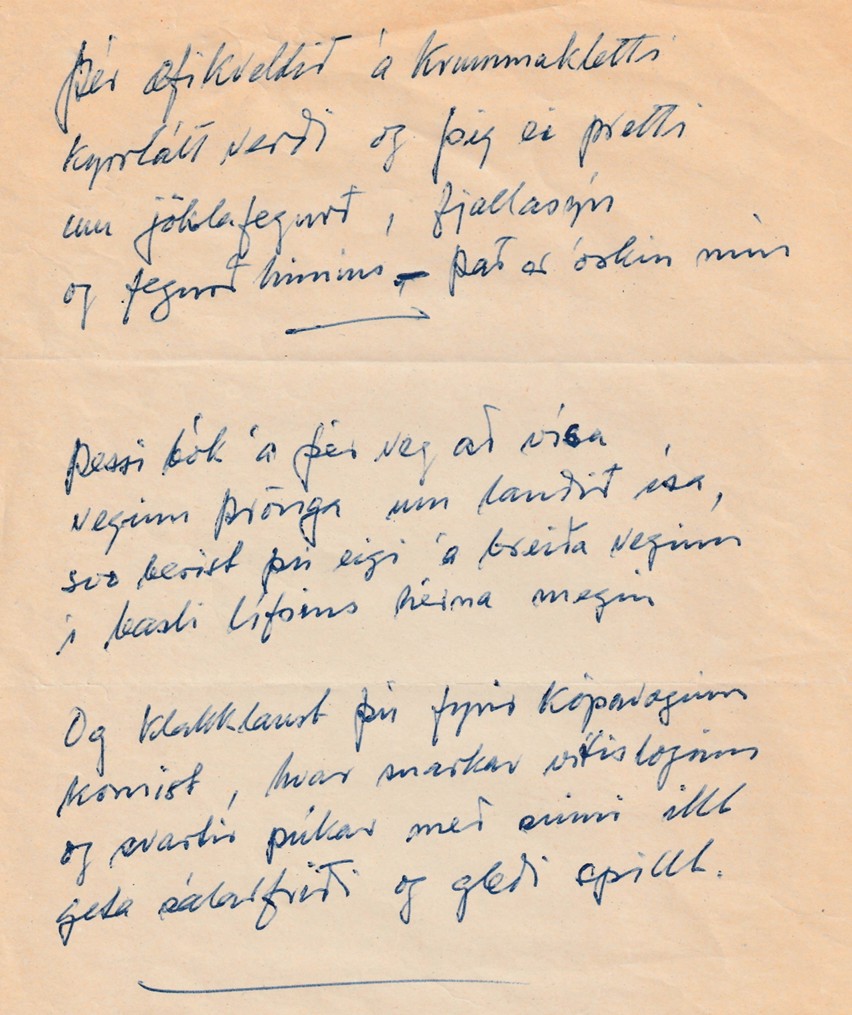 Þér æfikveldið á Krummakletti
kyrrlátt verði og þig ei pretti
um jöklafegurð, fjallasýn
og fegurð himins, – Það er óskin mín
Þessi bók á þér veg að vísa
veginn þrönga um landið ísa,
svo berist þú eigi á breiða veginn
í basli lífsins hérna megin
Og klakklaust þú fyrir Kópavoginn
komist, hvar snarkar vítisloginn
og svartir púkar með sinni illt
geta sálarfriði og gleði spillt.